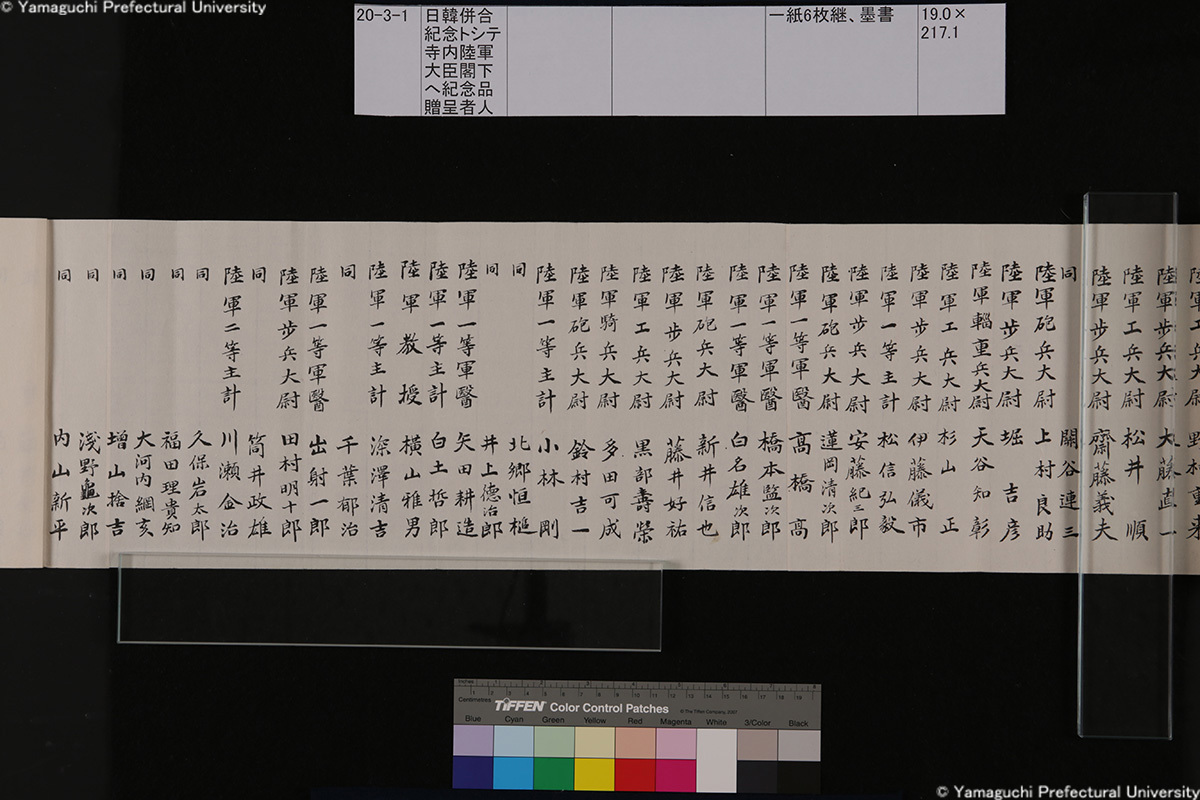 © Yamaguchi Prefectural University
20-3-1
日韓併合
紀念トシテ
寺内陸軍
大臣閣下
へ紀念品
贈呈者人
一紙6枚継、墨書
19.0×
217.1
陸軍歩兵大尉 大藤直一
陸軍工兵大尉 松井順
陸軍歩兵大尉 齋藤義夫
同 関谷連三
陸軍砲兵大尉 上村良助
陸軍歩兵大尉 堀吉彦
陸軍輜重兵大尉 天谷知彰
陸軍工兵大尉 杉山正
陸軍歩兵大尉 伊藤儀市
陸軍一等主計 松信弘毅
陸軍歩兵大尉 安藤紀三郎
陸軍砲兵大尉 蓮岡清次郎
陸軍一等軍醫 高橋高
陸軍一等軍醫 橋本監次郎
陸軍一等軍醫 白名雄次郎
陸軍砲兵大尉 新井信也
陸軍歩兵大尉 藤井好祐
陸軍工兵大尉 黒部壽榮
陸軍騎兵大尉 多田可成
陸軍砲兵大尉 鈴村吉一
陸軍一等主計 小林剛
同 北郷恒槌
同 井上德治郎
陸軍一等軍醫 矢田耕造
陸軍一等主計 白土哲郎
陸軍教授 横山雅男
陸軍一等主計 深澤清吉
同 千葉郁治
陸軍一等軍醫 出射一郎
陸軍歩兵大尉 田村明十郎
同 筒井政雄
陸軍二等主計 川瀬金治
同 久保岩太郎
同 福田理貴知
同 大河内綱亥
同 増山捨吉
同 淺野龜次郎
同 内山新平
inches
Centimetres
TIFFEN Color Control Patches
© The Tiffen Company, 2007
Blue Cyan Green Yellow Red Magenta White 3/Color Black
© Yamaguchi Prefectural University